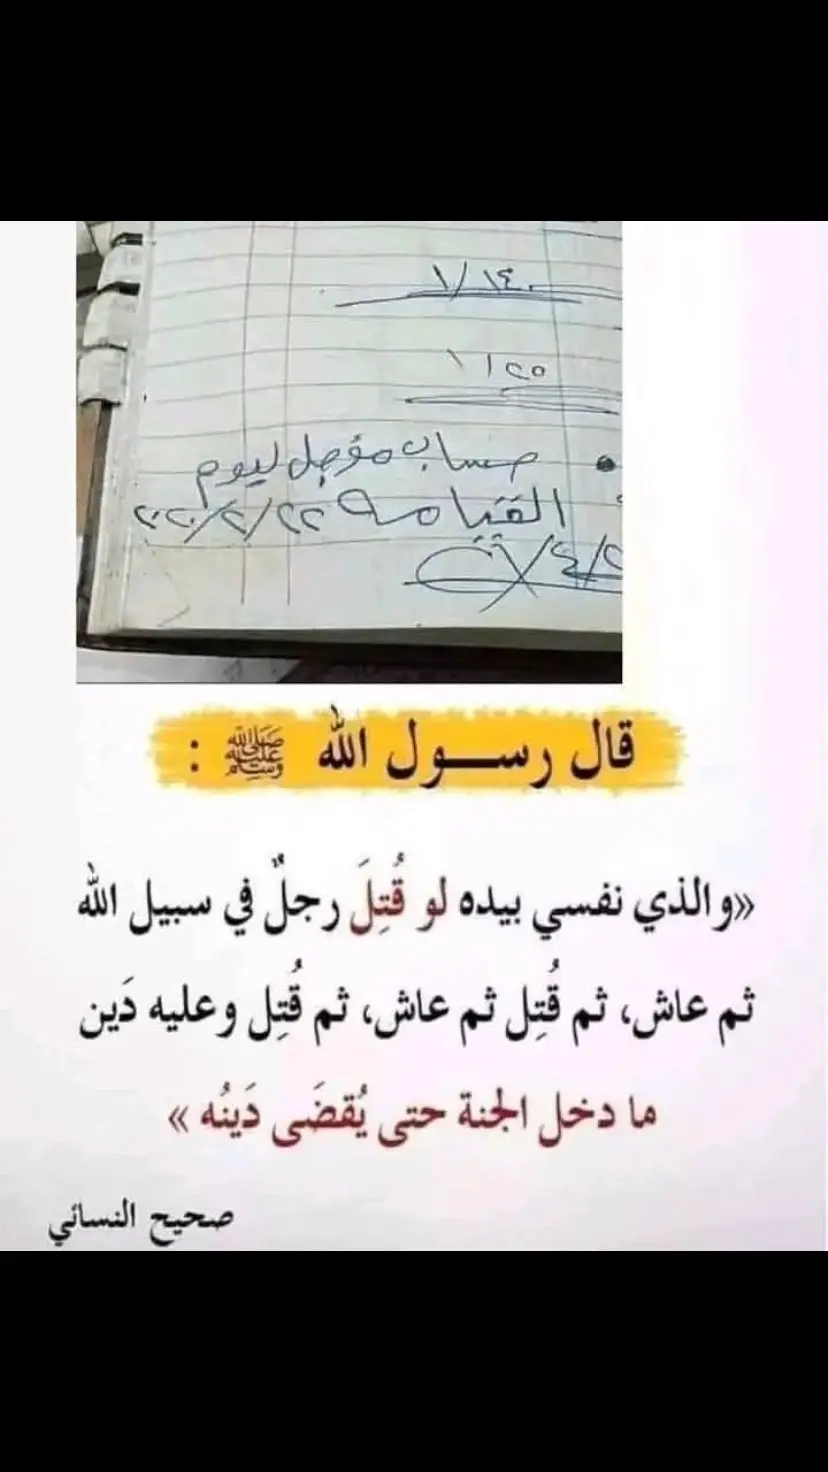 ١/١٤٠
١١٢٥
حساب مؤجل ليوم
القيامه ٢٠٢٠/٢/٢٢
قال رسول الله ﷺ :
«والذي نفسي بيده لو قُتِلَ رجلٌ في سبيل الله
ثم عاش، ثم قُتِل ثم عاش، ثم قُتِل وعليه دَين
ما دخل الجنة حتى يُقضَى دَينُه »
صحيح النسائي